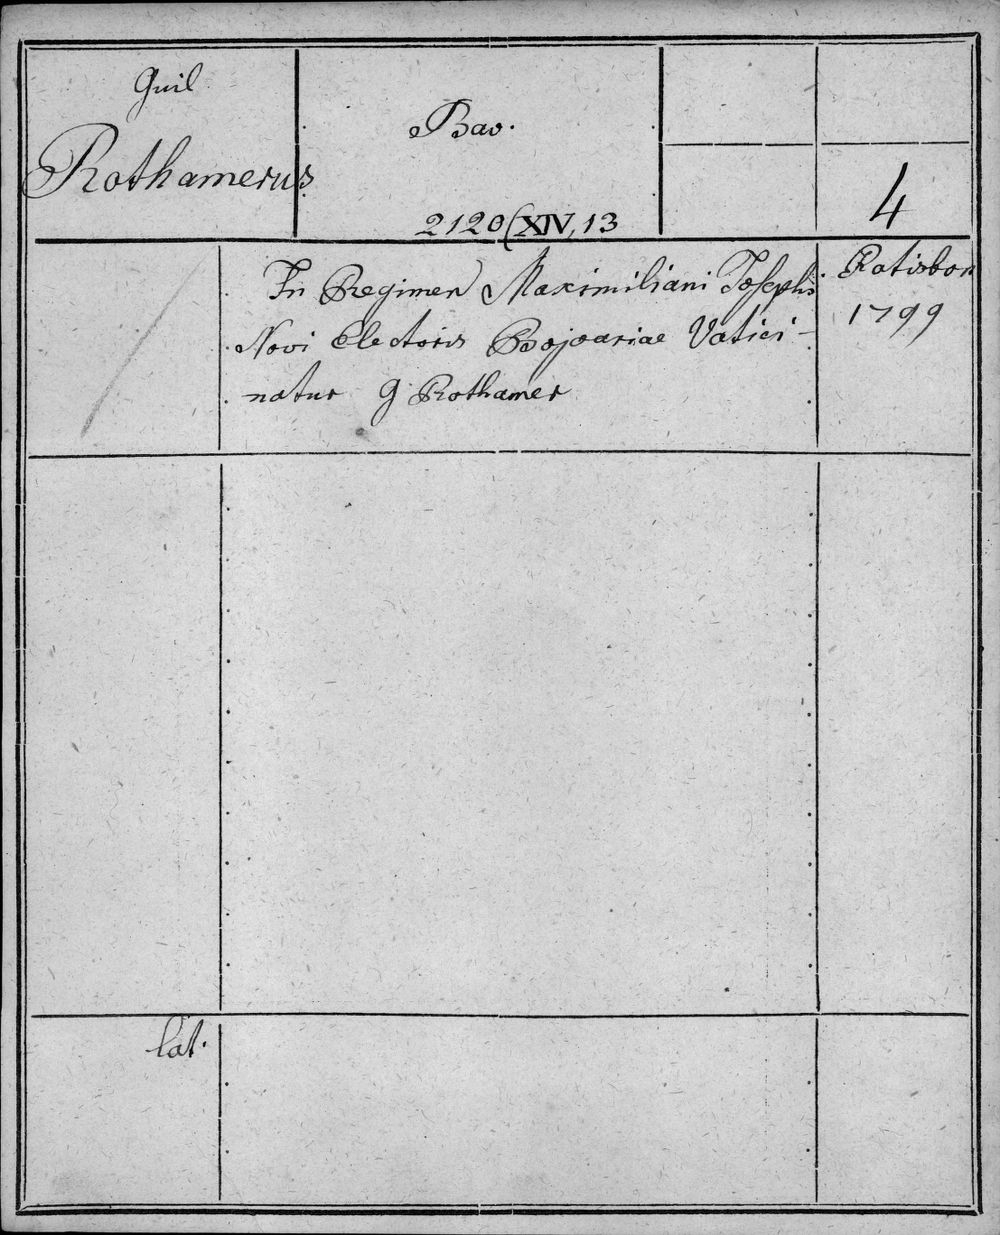 Guil
Rothamerus
Bav.
2120(XIV,13
4
In Regimen Maximiliani Josephi
Novi Electoris Bojoariae Vatici-
natur G Rothamer
Ratisbon
1799
lat.